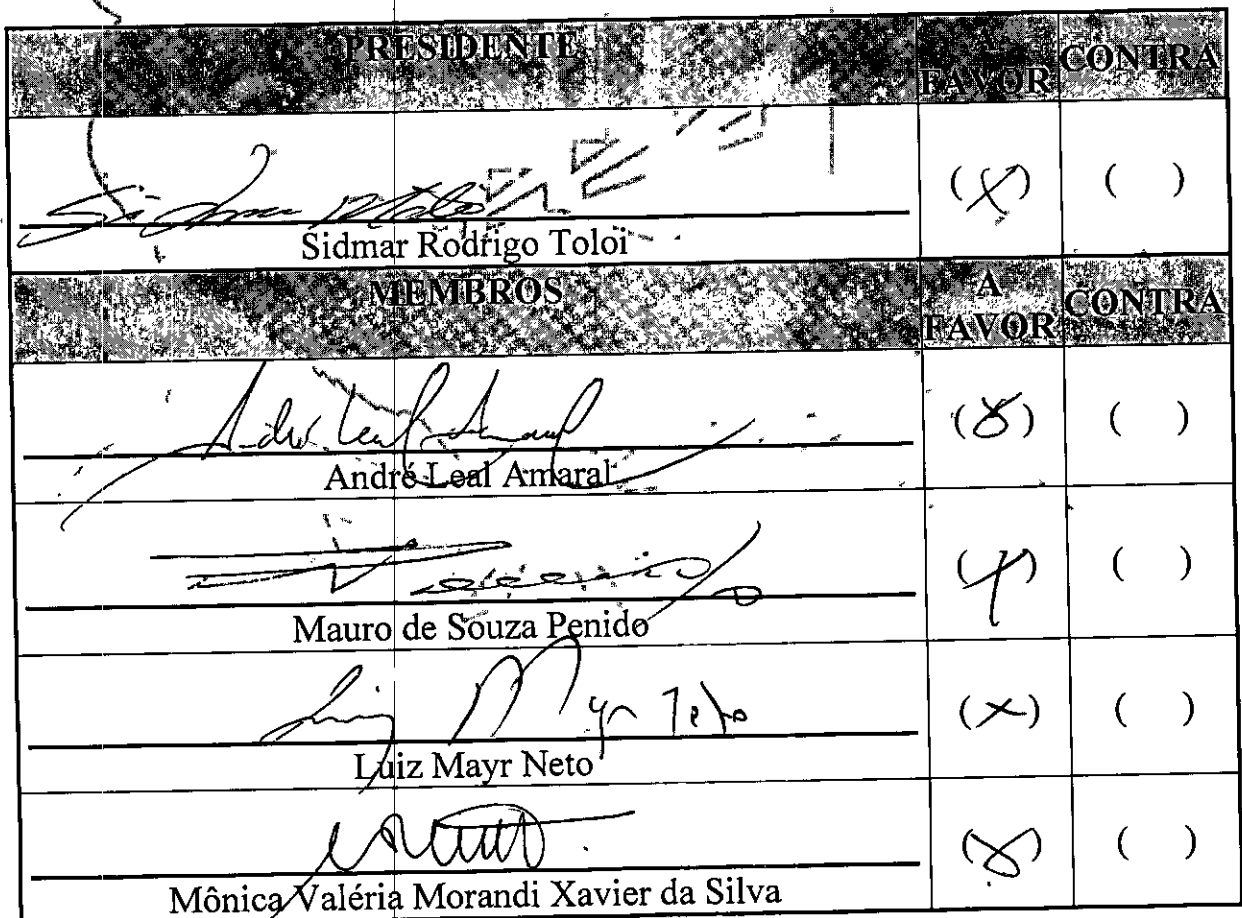 PRESIDENTE A FAVOR CONTRA
(X) ( )
Sidmar Rodrigo Toloi
MEMBROS A FAVOR CONTRA
André Leal Amaral
(X) ( )
Mauro de Souza Penido
(X) ( )
Luiz Mayr Neto
(X) ( )
Mônica Valéria Morandi Xavier da Silva
(X) ( )